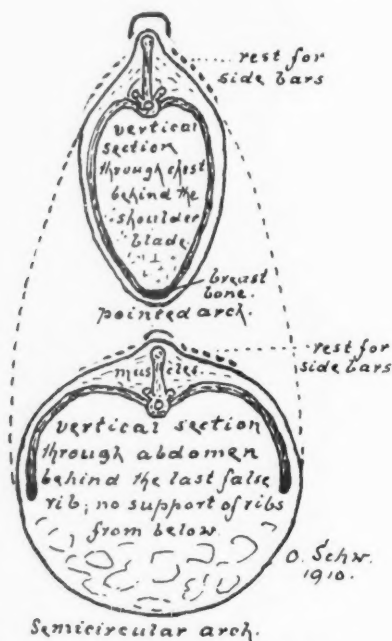 rest for
side bars
vertical
section
through chest
behind the
shoulder
blade.
breast
bone.
pointed arch.
rest for
side bars
muscles.
vertical section
through abdomen
behind the last false
rib; no support of ribs
from below.
O. Schw.
1910.
Semicircular arch.